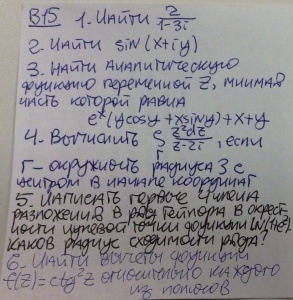 В15 1. Найти 2/(1-3i)
2. Найти sin(x+iy)
3. Найти аналитическую
функцию переменной z, мнимая
часть которой равна
e^x(y cosy + x siny) + x + y
4. Вычислить ∫_Γ z²dz/(z-2i), если
Γ - окружность радиуса 3 с
центром в начале координат
5. Написать первые члена
разложения в ряд Тейлора в окрест-
ности нулевой точки функции
каков радиус сходимости ряда?
6. Найти вычеты функции
f(z)=ctg²z относительно каждого
из полюсов